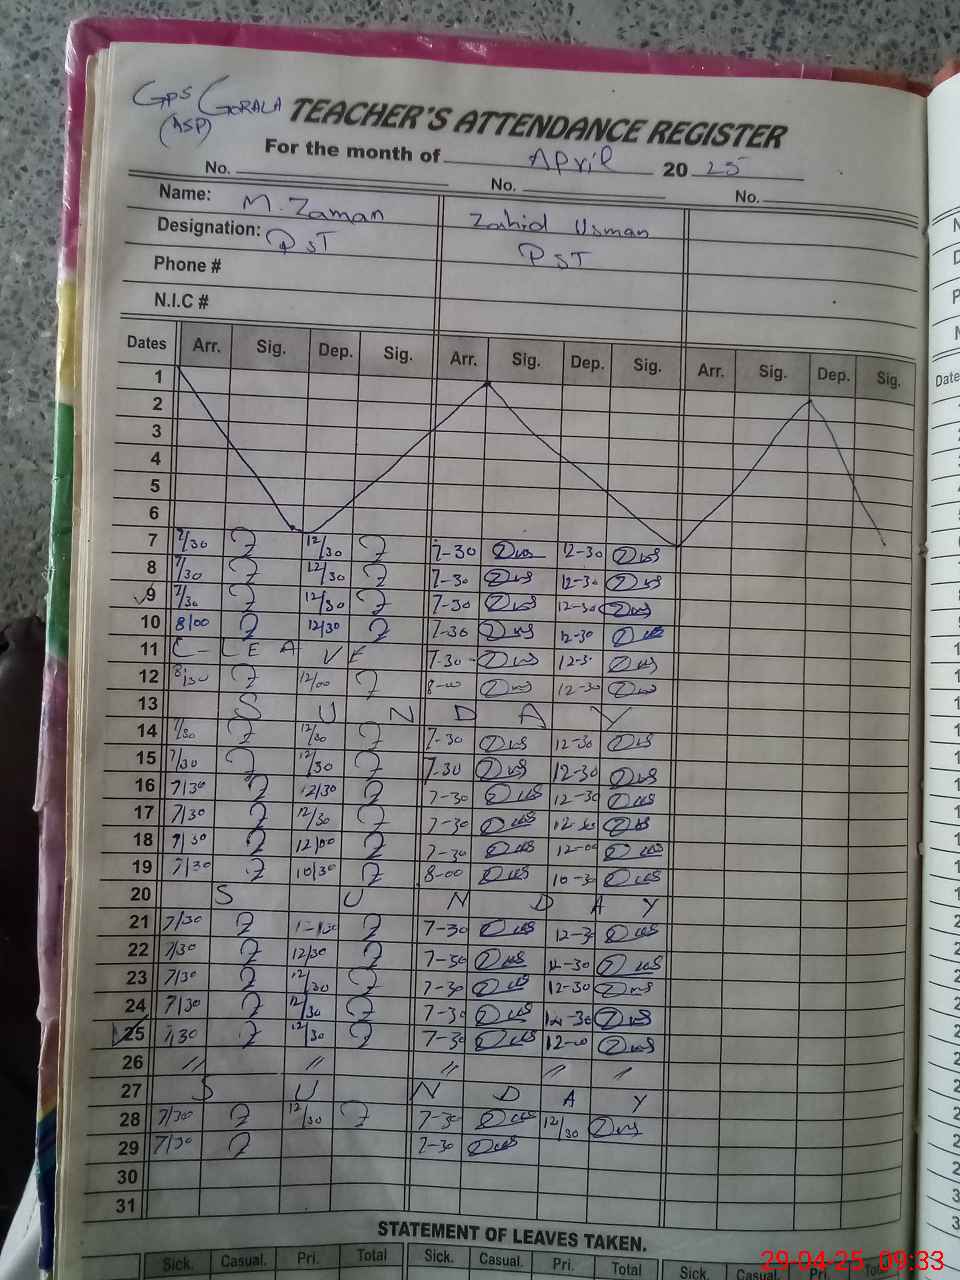 GPS GORALA
(ASP)
TEACHER'S ATTENDANCE REGISTER
For the month of April 20 25
No. No. No.
Name: M. Zaman Zahid Usman
Designation: PST PST
Phone #
N.I.C #
Dates Arr. Sig. Dep. Sig. Arr. Sig. Dep. Sig. Arr. Sig. Dep. Sig.
1
2
3
4
5
6
7 7/30 12/30 7-30 12-30
8 7/30 12/30 7-30 12-30
9 7/30 12/30 7-30 12-30
10 8/00 12/30 7-30 12-30
11 C-LEAVE 7-30 12-3
12 8/30 12/00 8-00 12-30
13 SUNDAY
14 7/30 12/30 7-30 12-30
15 7/30 12/30 7-30 12-30
16 7/30 12/30 7-30 12-30
17 7/30 12/30 7-30 12-30
18 7/30 12/00 7-30 12-00
19 7/30 10/30 8-00 10-30
20 SUNDAY
21 7/30 7-30 12-3
22 7/30 12/30 7-30 12-30
23 7/30 12/30 7-30 12-30
24 7/30 12/30 7-30 12-30
25 7/30 12/30 7-30 12-00
26 // // // // //
27 SUNDAY
28 7/30 12/30 7-30 12/30
29 7/30 7-30
30
31
STATEMENT OF LEAVES TAKEN.
Sick. Casual. Pri. Total Sick. Casual. Pri. Total Sick. Casual. Pri. Total
29-04-25 09:33